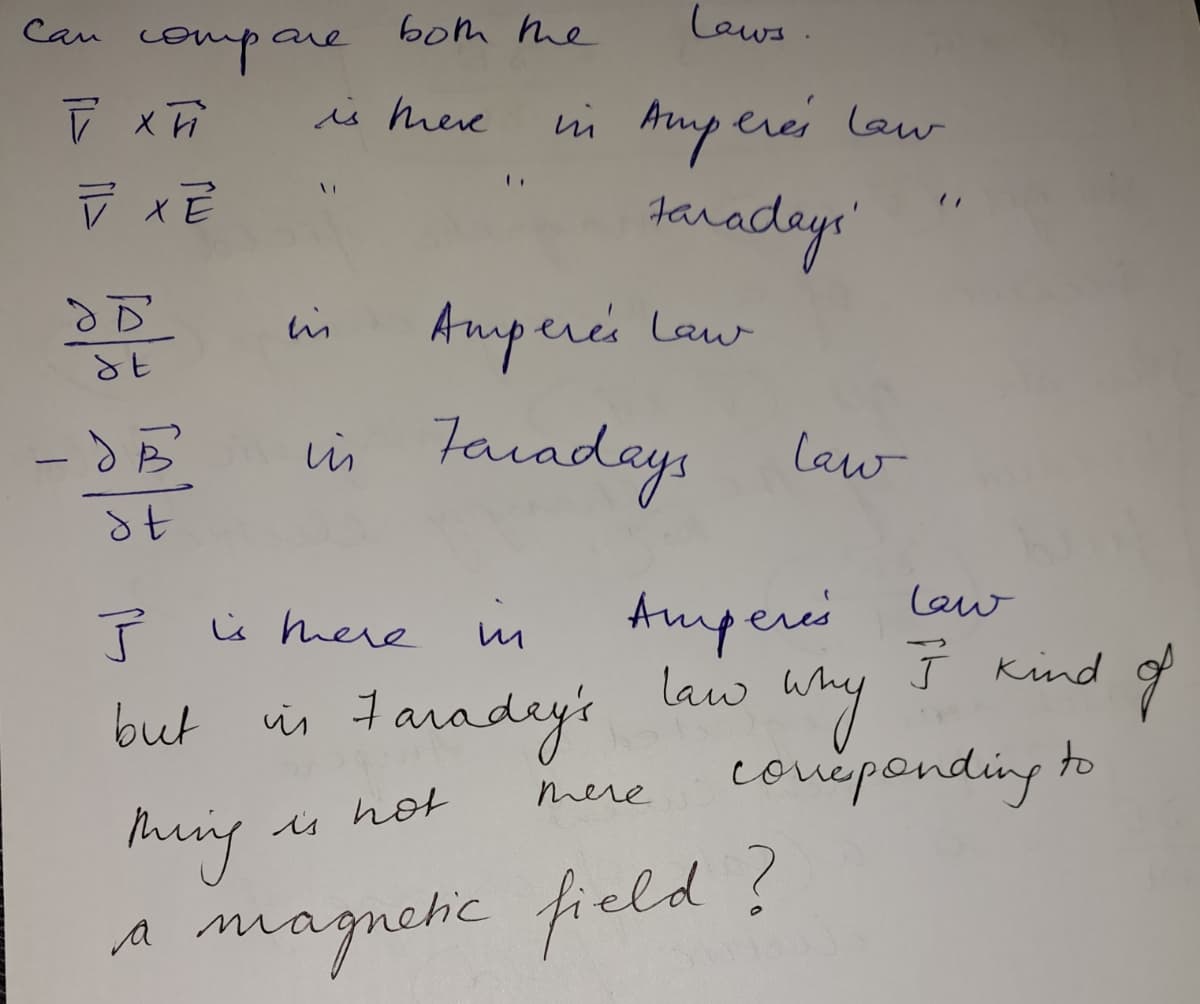 can compare both the laws.
∇⃗ × H⃗ is there in Ampere's law
∇⃗ × E⃗ " " Faradays' "
∂D⃗/∂t in Ampere's law
-∂B⃗/∂t in Faradays law
J⃗ is there in Ampere's law
but in Faraday's law why J⃗ kind of
thing is not there corresponding to
a magnetic field?